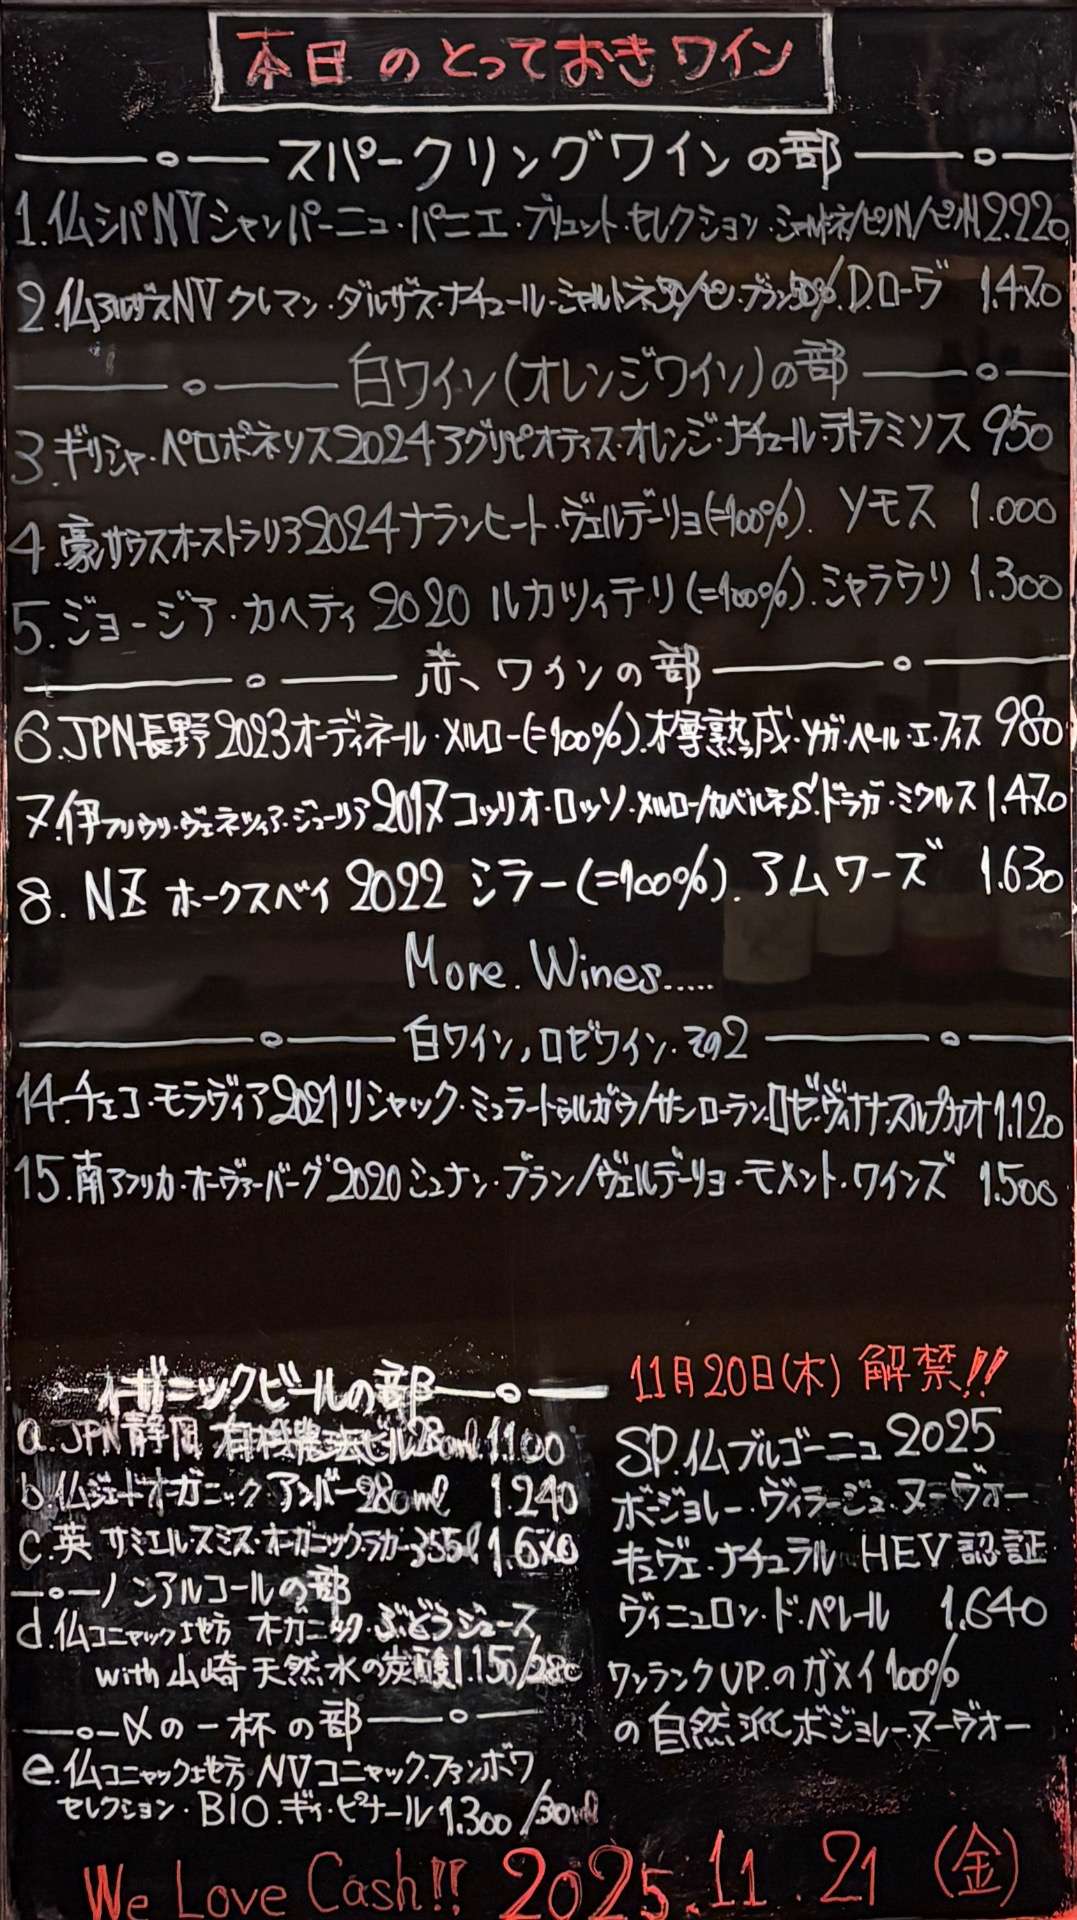 本日のとっておきワイン
スパークリングワインの部
1.仏シパNVシャンパーニュ・パニエ・ブリュット・セレクション・シャルドネ/ピノN/ピノM2.220
2.仏アルザスNVクレマン・ダルザス・ナチュール・シャルドネ50/ピノ・ブラン50%.D.ローヴ 1.470
白ワイン(オレンジワイン)の部
3.ギリシャ・ペロポネソス2024アグリピオティス・オレンジ・ナチュール・テトラミソス 950
4.豪サウスオーストラリア2024ナランヒート・ヴェルデーリョ(=100%). ソモス 1.000
5.ジョージア・カヘティ 2020 ルカツィテリ(=100%).ミャラウリ 1.300
赤ワインの部
6.JPN長野2023オーディネール・メルロー(=100%).木樽熟成・ソガ・ペール・エ・フィス 980
7.伊フリウリ・ヴェネツィア・ジューリア2017コッリオ・ロッソ・メルロー/カベルネS.ドラガ・ミクルス 1.470
8. NZ ホークスベイ 2022 シラー(=100%). アムワーズ 1.630
More. Wines.....
白ワイン,ロゼワイン・その2
14.チェコ・モラヴィア2021リシャック・ミュラートゥルガウ/サンローラン.ロゼ・ヴィナナスルプカオ1.120
15.南アフリカ・オーヴァーバーグ2020シュナン・ブラン/ヴェルデーリョ・モメント・ワインズ 1.500
オーガニックビールの部
a.JPN静岡 有機農法ビル 280ml 1.100
b.仏ジェードオーガニック アンバー280ml 1.240
c.英 サミエル・スミス・オーガニックラガー355l 1.6
ノンアルコールの部
d.仏コニャック地方 オーガニック・ぶどうジュース
with 山崎天然水の炭酸 1.150/280
〆の一杯の部
e.仏コニャック地方 NVコニャック.ファンボワ
セレクション・BIO.ギィ・ピナール1.300/30ml
11月20日(木)解禁!!
SP.仏ブルゴーニュ 2025
ボージョレー・ヴィラージュ・ヌーヴォー
キュヴェ・ナチュラル HEV認証
ヴィニュロン・ド・ペレール 1.640
ワンランクUP.のガメイ100%
の自然派ボジョレーヌーヴォー
We Love Cash!! 2025.11.21 (金)